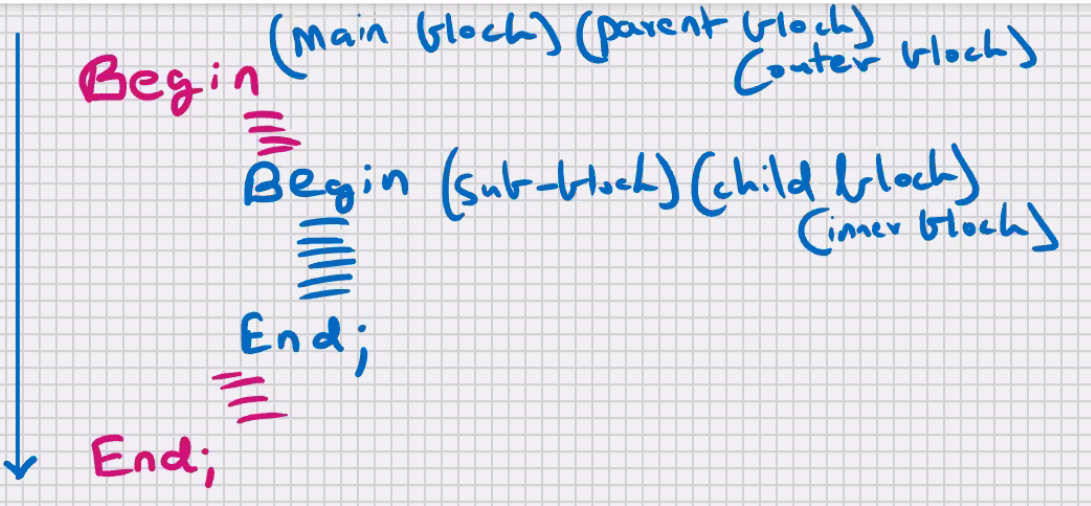 (main block) (parent block)
Begin (outer block)
Begin (sub-block) (child block)
(inner block)
End;
End;